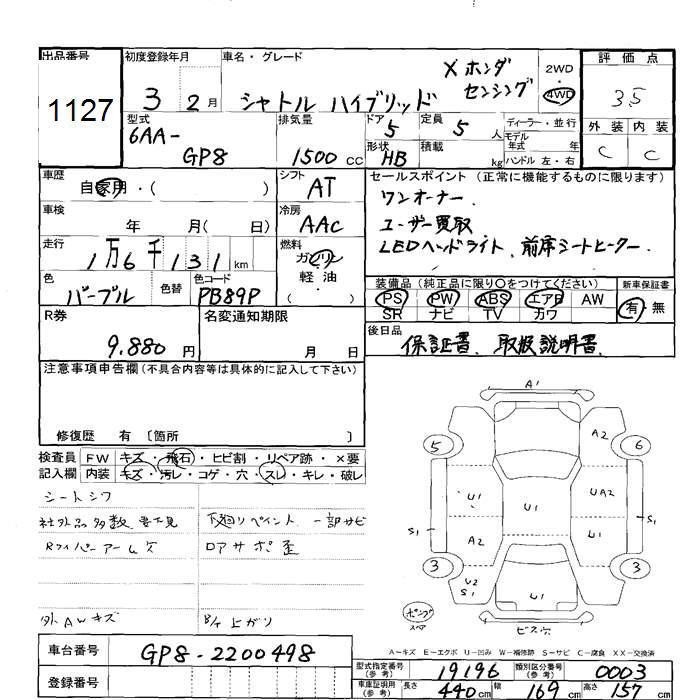 出品番号
1127
初度登録年月
3 2月
車名・グレード
X ホンダ
シャトル ハイブリッド センシング
2WD
・
4WD
評価点
35
型式
6AA-
GP8
排気量
1500 CC
ドア
5
定員
5 人
ディーラー・並行
モデル
年式 年
形状
HB
積載
kg
ハンドル 左・右
外装 内装
C C
車歴
自家用・( )
シフト
AT
車検
年 月( 日)
冷房
AAC
走行
1万6千131km
燃料
ガソリン
軽油
( ・ )
色
パープル
色替
色コード
PB89P
セールスポイント (正常に機能するものに限ります)
ワンオーナー.
ユーザー買取
LEDヘッドライト、前席シートヒーター.
装備品 (純正品に限り○をつけてください)
PS PW ABS エアB AW
SR ナビ TV カワ
新車保証書
有・無
R券
9.880 円
名変通知期限
月 日
後日品
保証書、取扱説明書、
注意事項申告欄(不具合内容等は具体的に記入して下さい)
修復歴 有 〔箇所 〕
検査員
記入欄
FW キズ・飛石・ヒビ割・リペア跡・×要
内装 キズ・汚レ・コゲ・穴・スレ・キレ・破レ
シートシワ
社外品多数 要下見
下廻りペイント 一部サビ
Rワイパーアーム欠
ロアサポ歪
外AWキズ
B/T上がり
A1
5
A2
6
U1
U1
UA2
S1
A2
U1
S1
3
U2
S1
3
U1
ポンプ
スペア
ビス穴
A-キズ E-エクボ U-凹み W-補修跡 S-サビ C-腐食 XX-交換済
車台番号
GP8-2200498
登録番号
型式指定番号
(参考)
19196
類別区分番号
(参考)
0003
車庫証明用
(参考)
長さ
440cm
幅
169cm
高さ
157cm